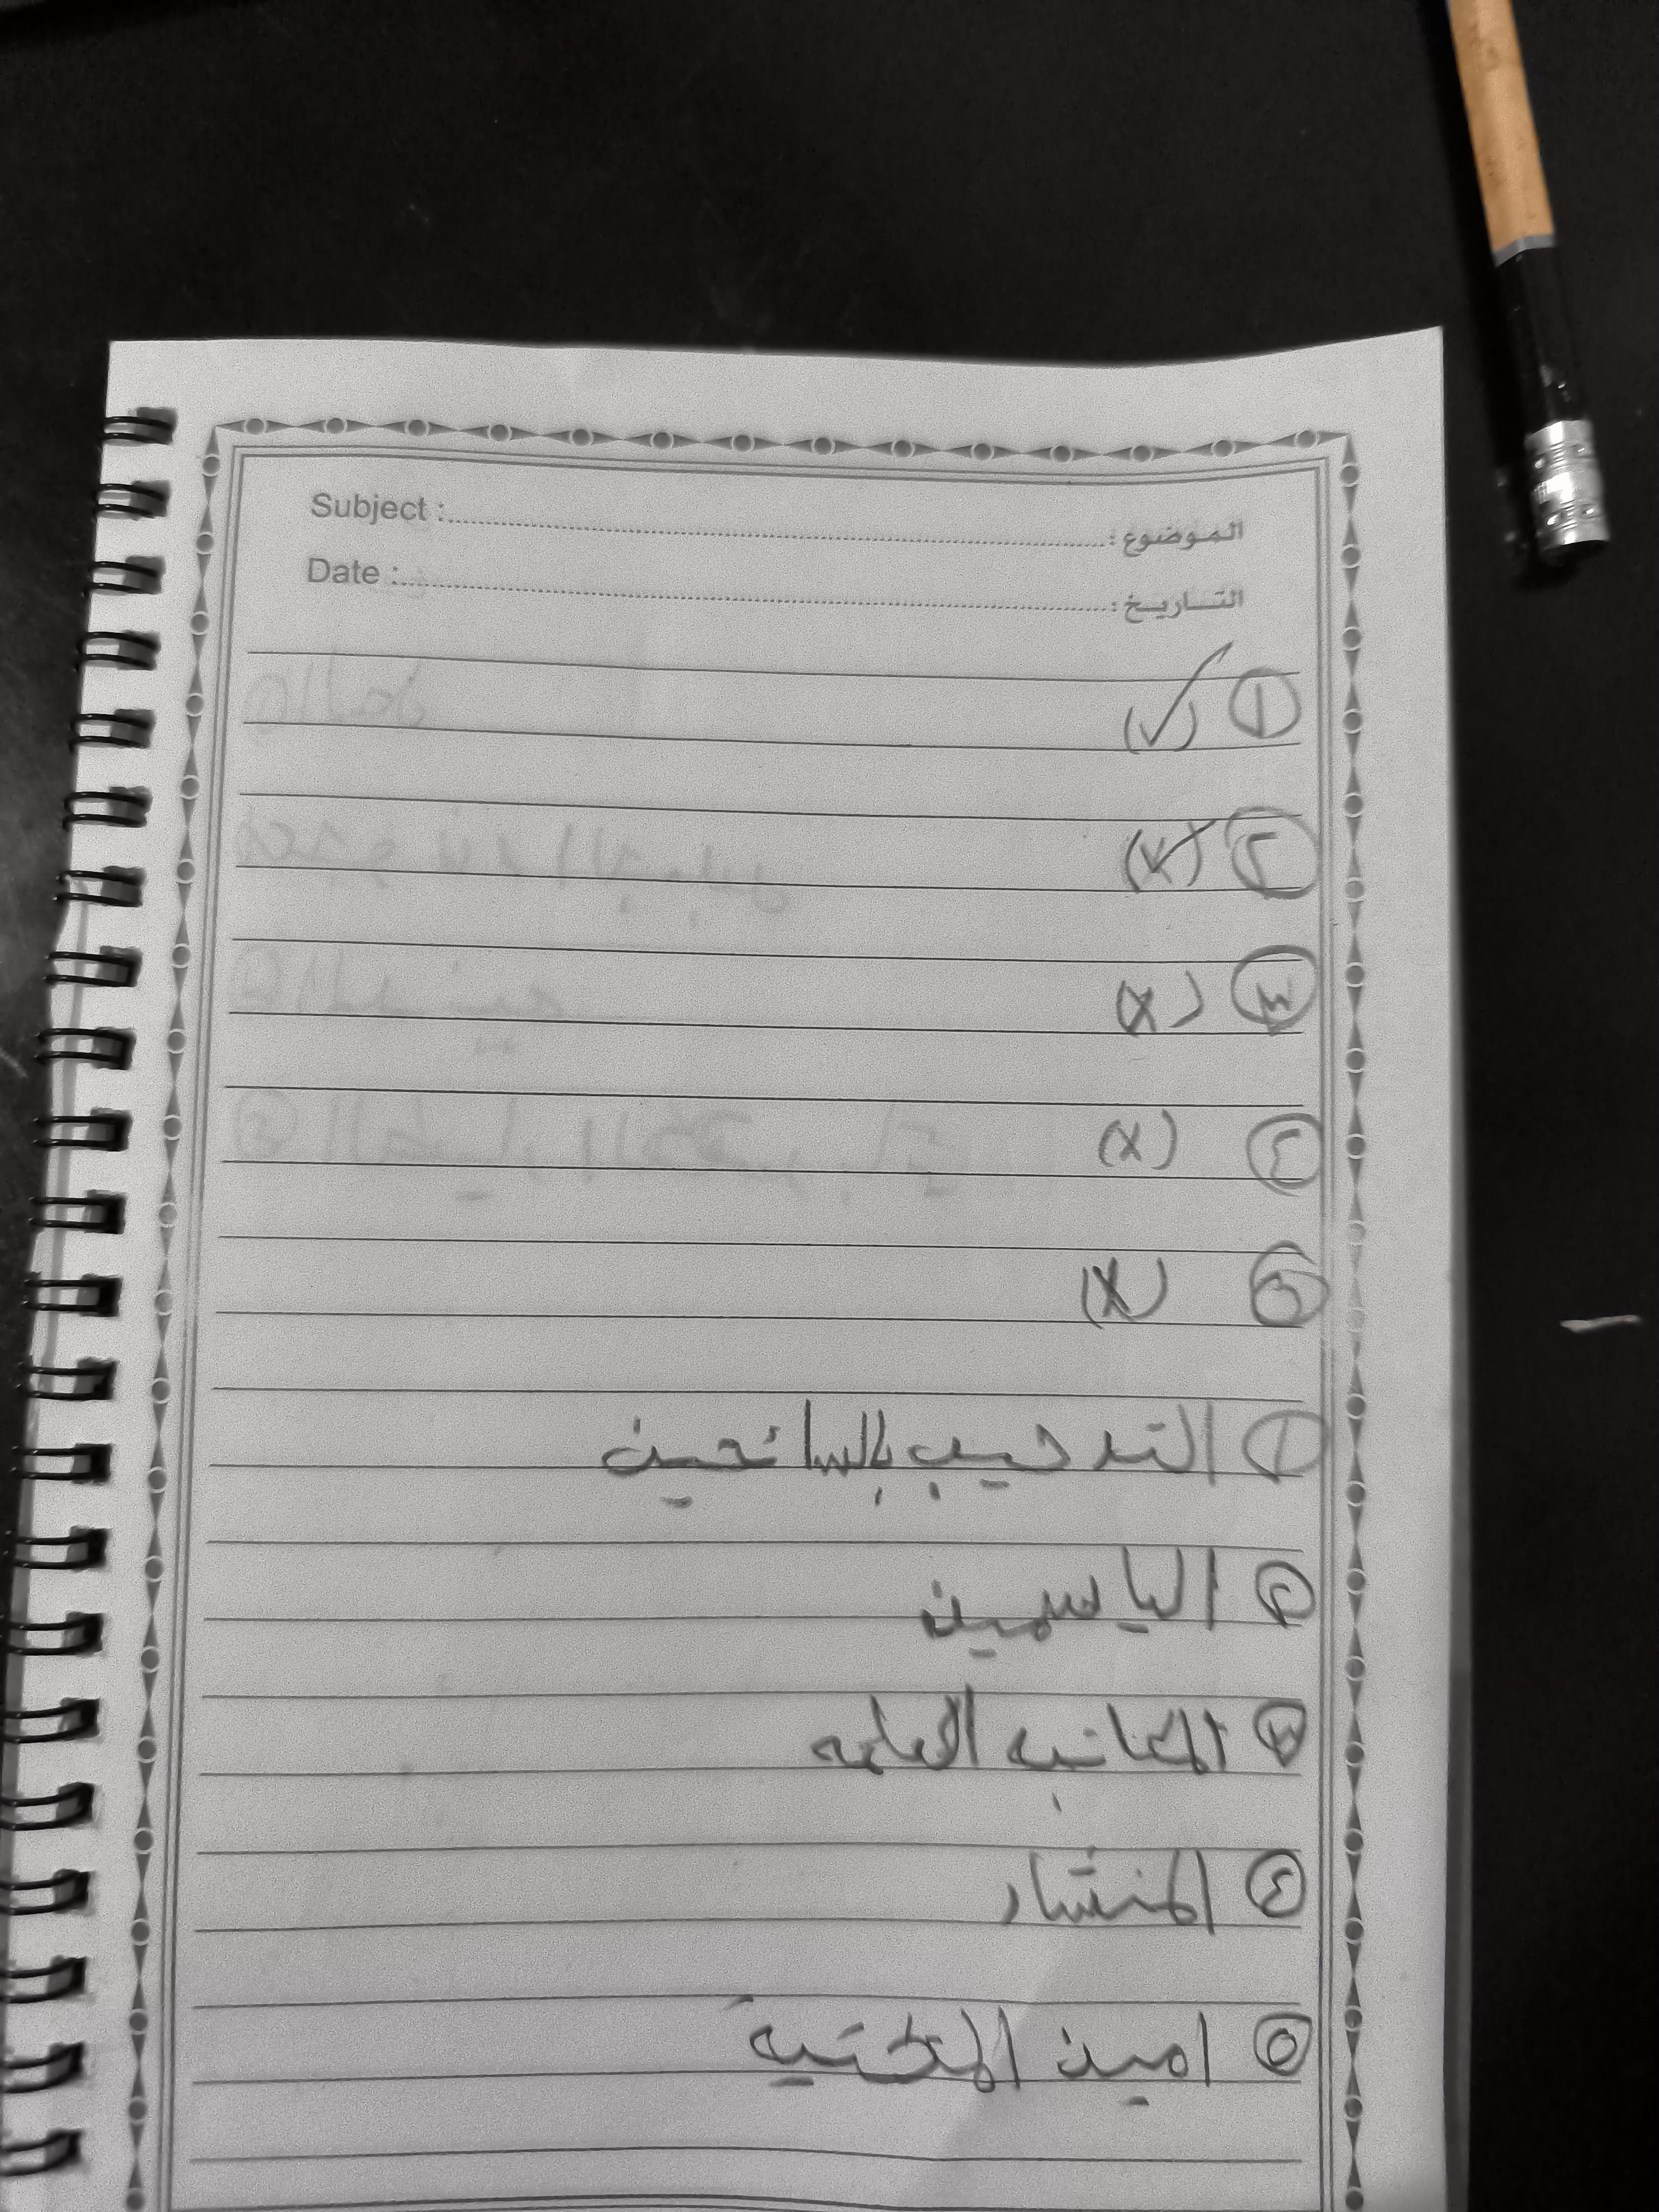 Subject : الموضوع :
Date : التاريخ :
① (✓)
② (✓)
③ (X)
④ (X)
⑤ (X)
① الترحيب بالسائحين
② الياسمين
③ العامه
④ المنشار
⑤ امين المكتبه